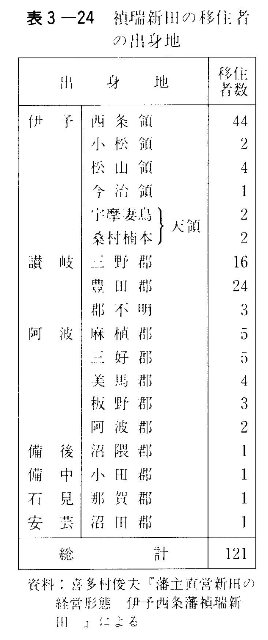 表3―24 禎瑞新田の移住者
の出身地
出身地 移住者数
伊予 西条領 44
小松領 2
松山領 4
今治領 1
宇摩妻鳥 天領 2
桑村楠本 2
讃岐 三野郡 16
豊田郡 24
郡不明 3
阿波 麻植郡 5
三好郡 5
美馬郡 4
板野郡 3
阿波郡 2
備後 沼隈郡 1
備中 小田郡 1
石見 那賀郡 1
安芸 沼田郡 1
総計 121
資料：喜多村俊夫『藩主直営新田の
経営形態 伊予西条藩禎瑞新
田 』による